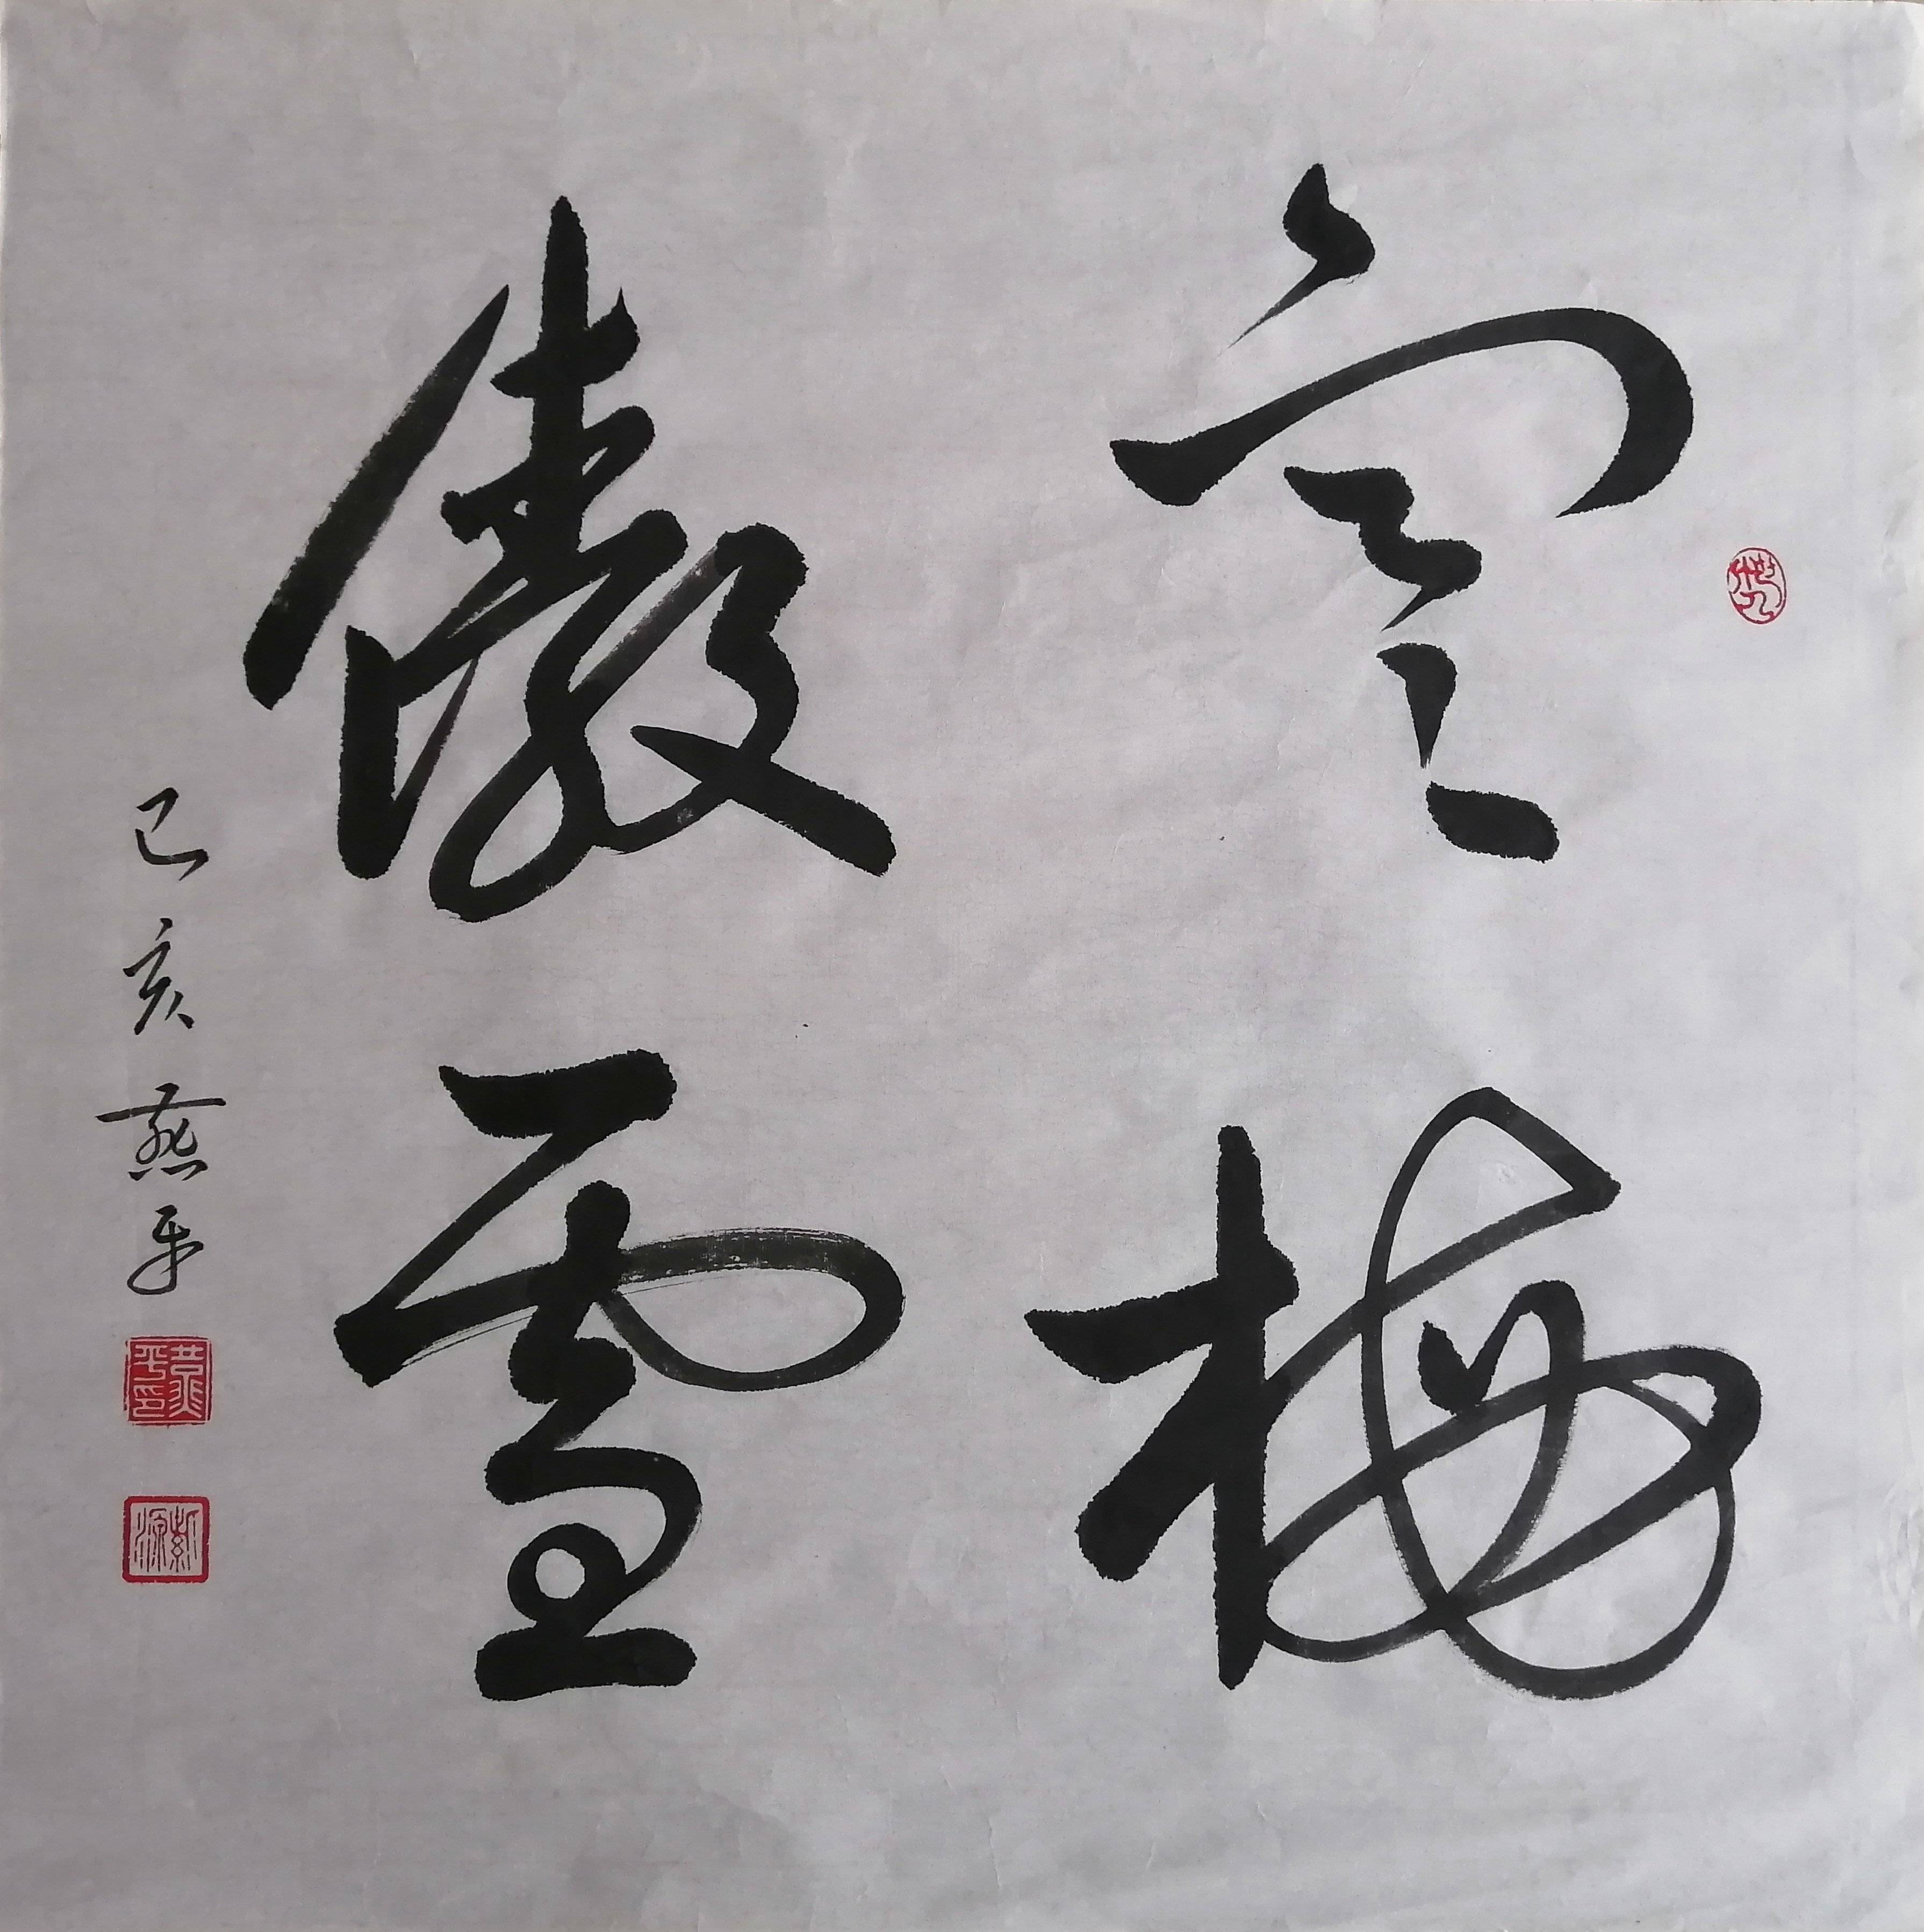 寒梅
傲雪
己亥燕平